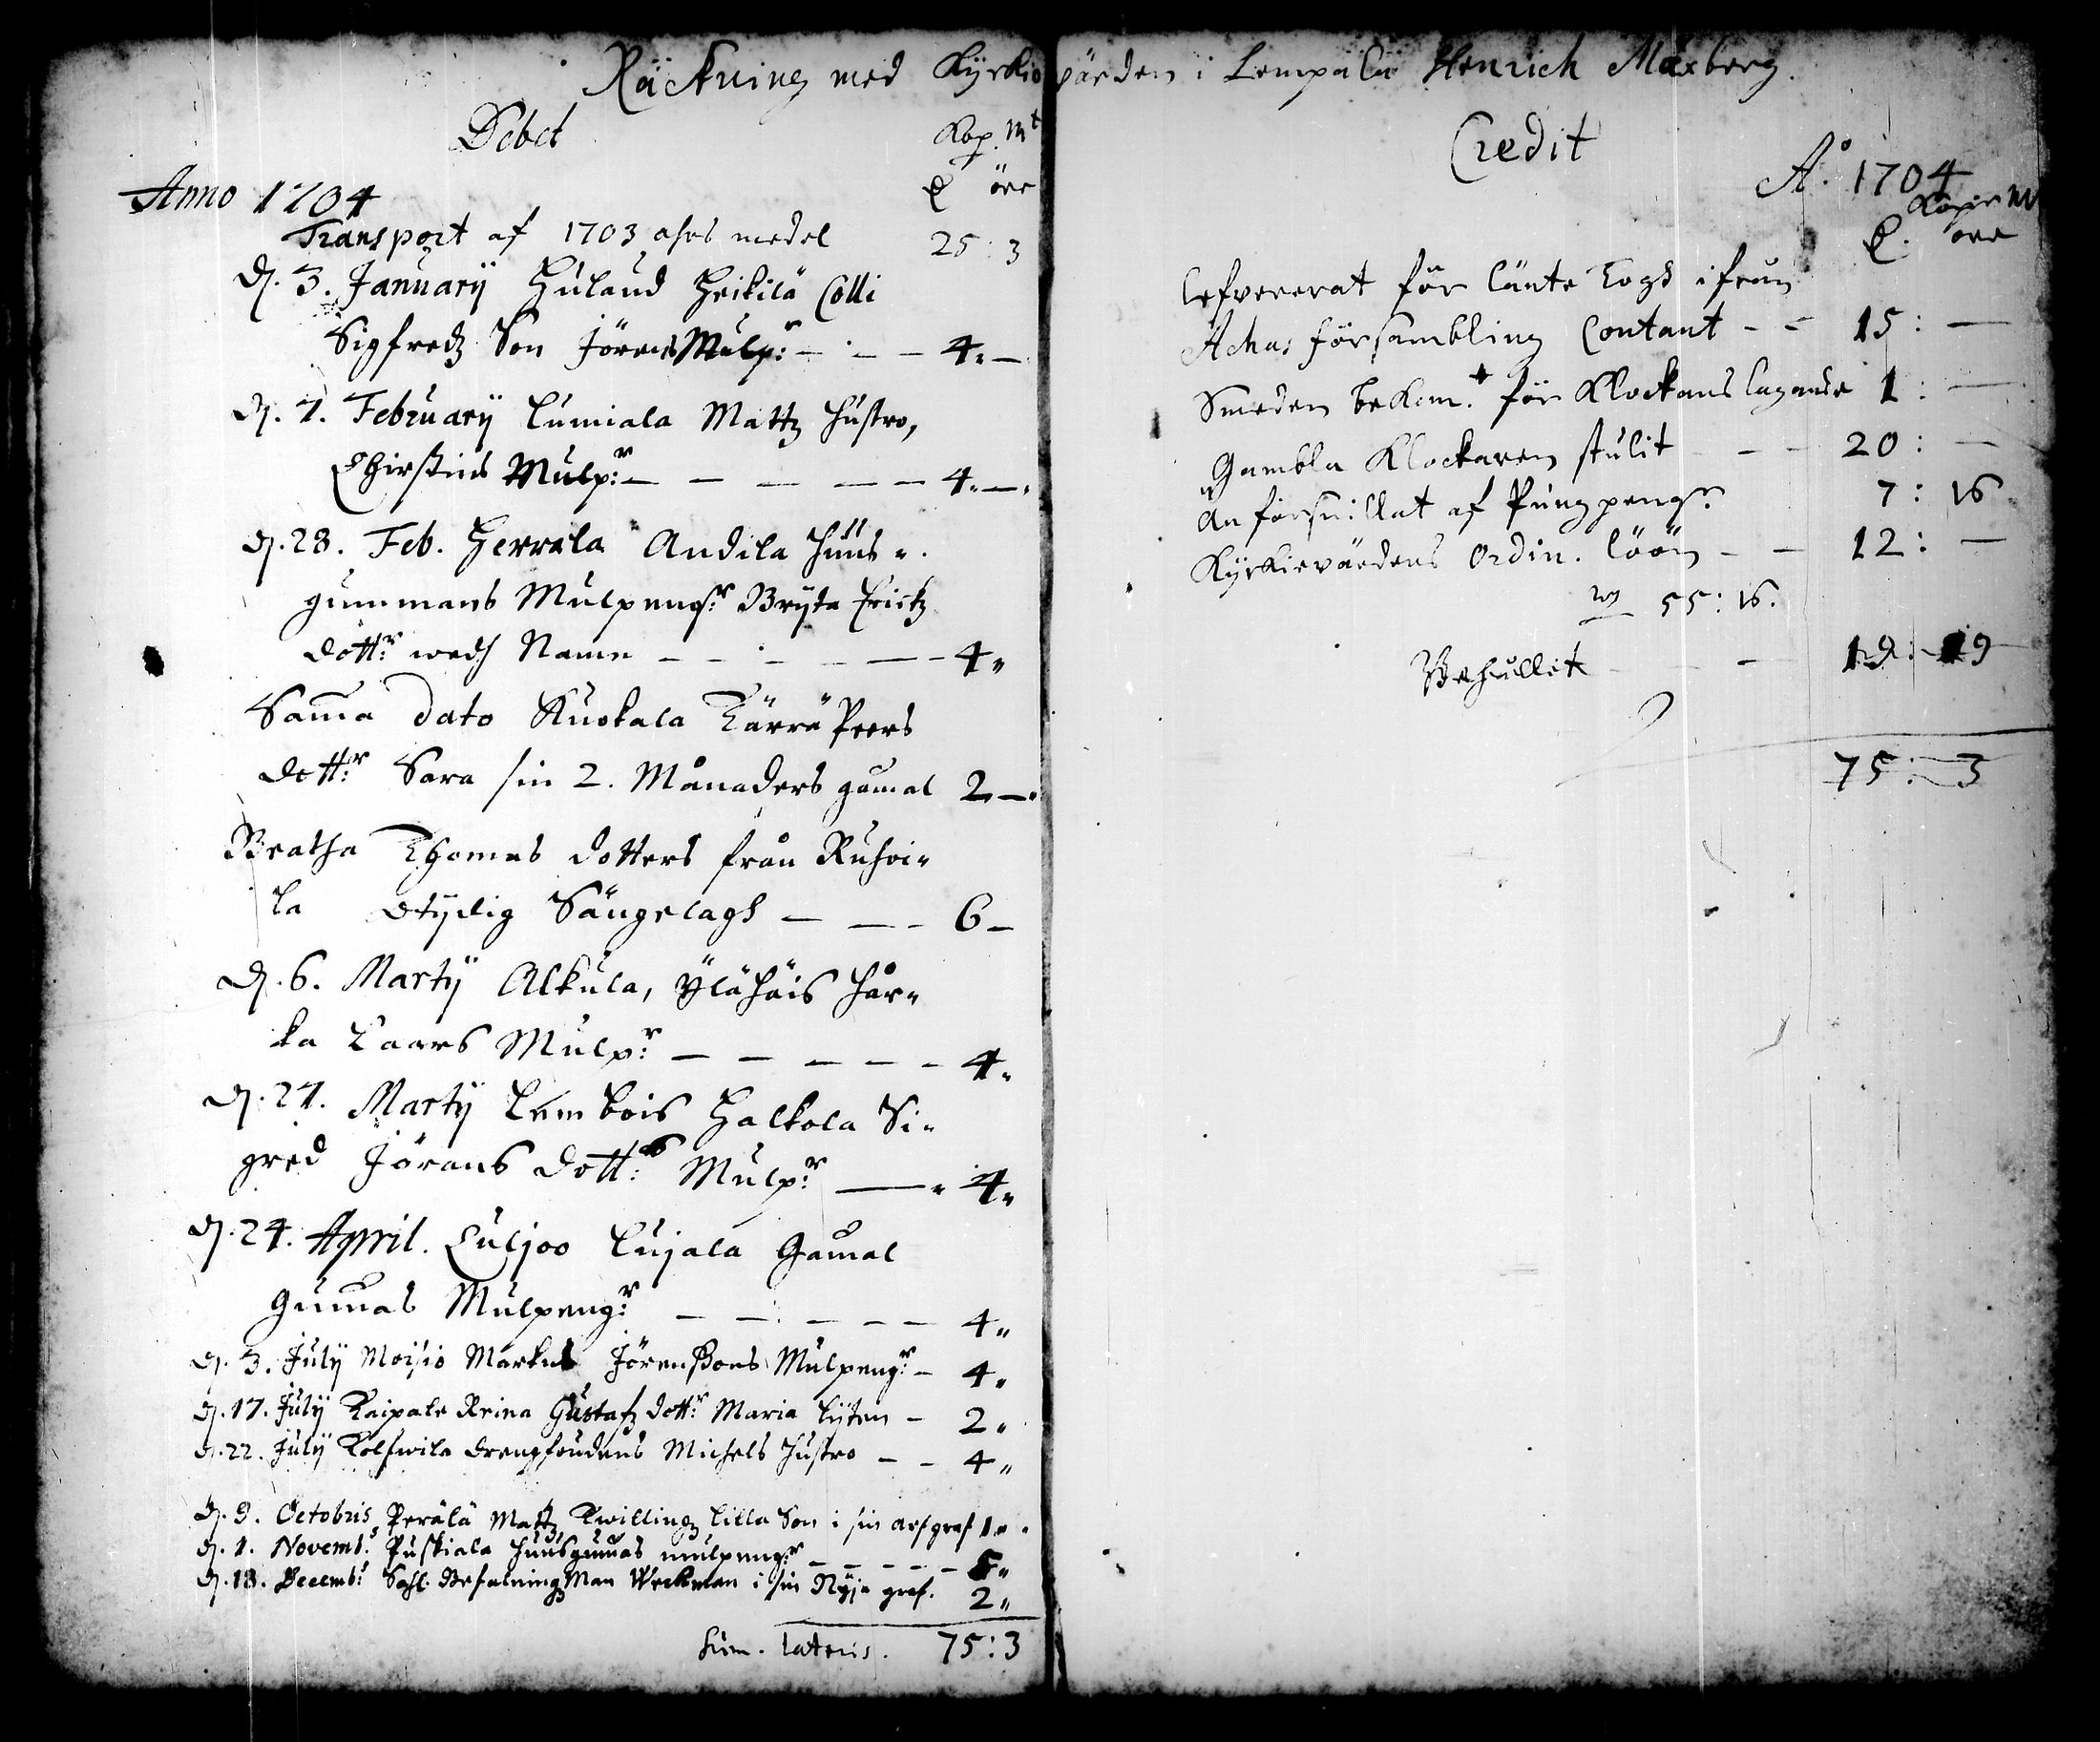 Räckning med Kyrkiovärden i Lempälä Henrich Maxberg.
Debet
Kop. Mt
Anno 1704
öre
Transport af 1703 ahrs medel 25: 3
d. 3. January Huland Heikilä Colli
Sigfredz Son Jörens Mulp:r - - - 4. -
d. 7. February Lumiala Mattz hustro,
Chirstins Mulp:r - - - - - 4. -
d. 28. Feb. Herrala Andila huus-
gummans Mulpeng:r Bryta Erichz
dott:r wedh Namn - - - - - 4"
Sama dato Kuokala Tärrä Peers
dott:r Sara sin 2. Månaders gamal 2 -
Beatha Thomas dotters från Kuhoi-
la otydig Sängelagh - - - 6 -
d. 6. Marty Alkula, Yläháis har-
ka Laars Mulp:r - - - - - 4"
d. 27. Marty Lembois Halkola Si-
gred Jörans dott:rs Mulp:r - 4"
d. 24. April. Culjoo Lujala Gamal
Gumas Mulpeng:r - - - - - 4"
d. 3. July Moisio Markus Jörenßons Mulpeng:r - 4"
d. 17. July Kaipala Reina Gustafz dott:r Maria lijten - 2"
d. 22. July Michels hustro - - 4"
d. 9. Octobris Perälä Mattz Twillingz lilla Son i sin arfgraf 1"
d. 1. Novemb: Puskiala huusgumas mulpeng:r - - - - - 5"
d. 18. Decemb: Sahl. Befalningzman Weckman i sin Nyja graf. 2"
Sum. lateris. 75: 3
Credit
A:o 1704
Koppar M
öre
lefvererat för länte Togh ifrån
Achas försambling Contant - - 15: -
Smeden bekom.t för Klockans lagande 1: -
Gambla Klockaren stulit - - - 20: -
An försnillat af Pungpeng:r 7: 16
Kyrkiovärdens Ordin. löön - - 12: -
55: 16.
Behållit - - - 19: 19
75: 3